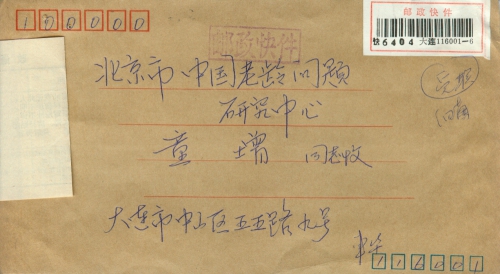 100000
邮政快件
邮政快件
快6404 大连116001-6
北京市中国老龄问题
研究中心
童增 同志收
大连市中山区五五路九号
116001